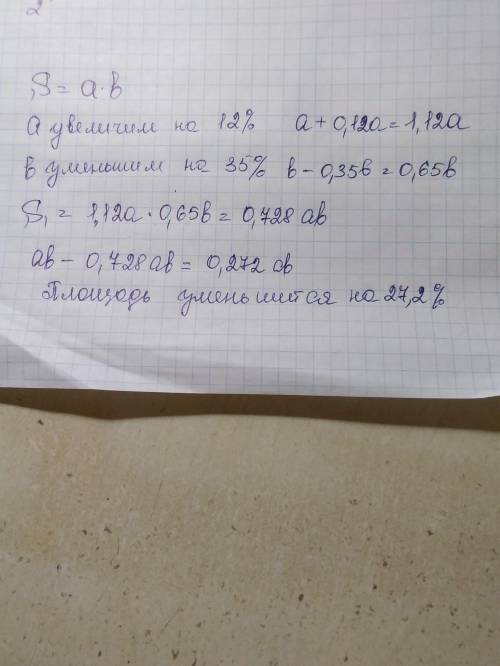 S = a·b
а увеличим на 12% a + 0,12a = 1,12a
в уменьшим на 35% в - 0,35в = 0,65в
S₁ = 1,12a · 0,65в = 0,728 ав
ав - 0,728 ав = 0,272 ав
Площадь уменьшится на 27,2%